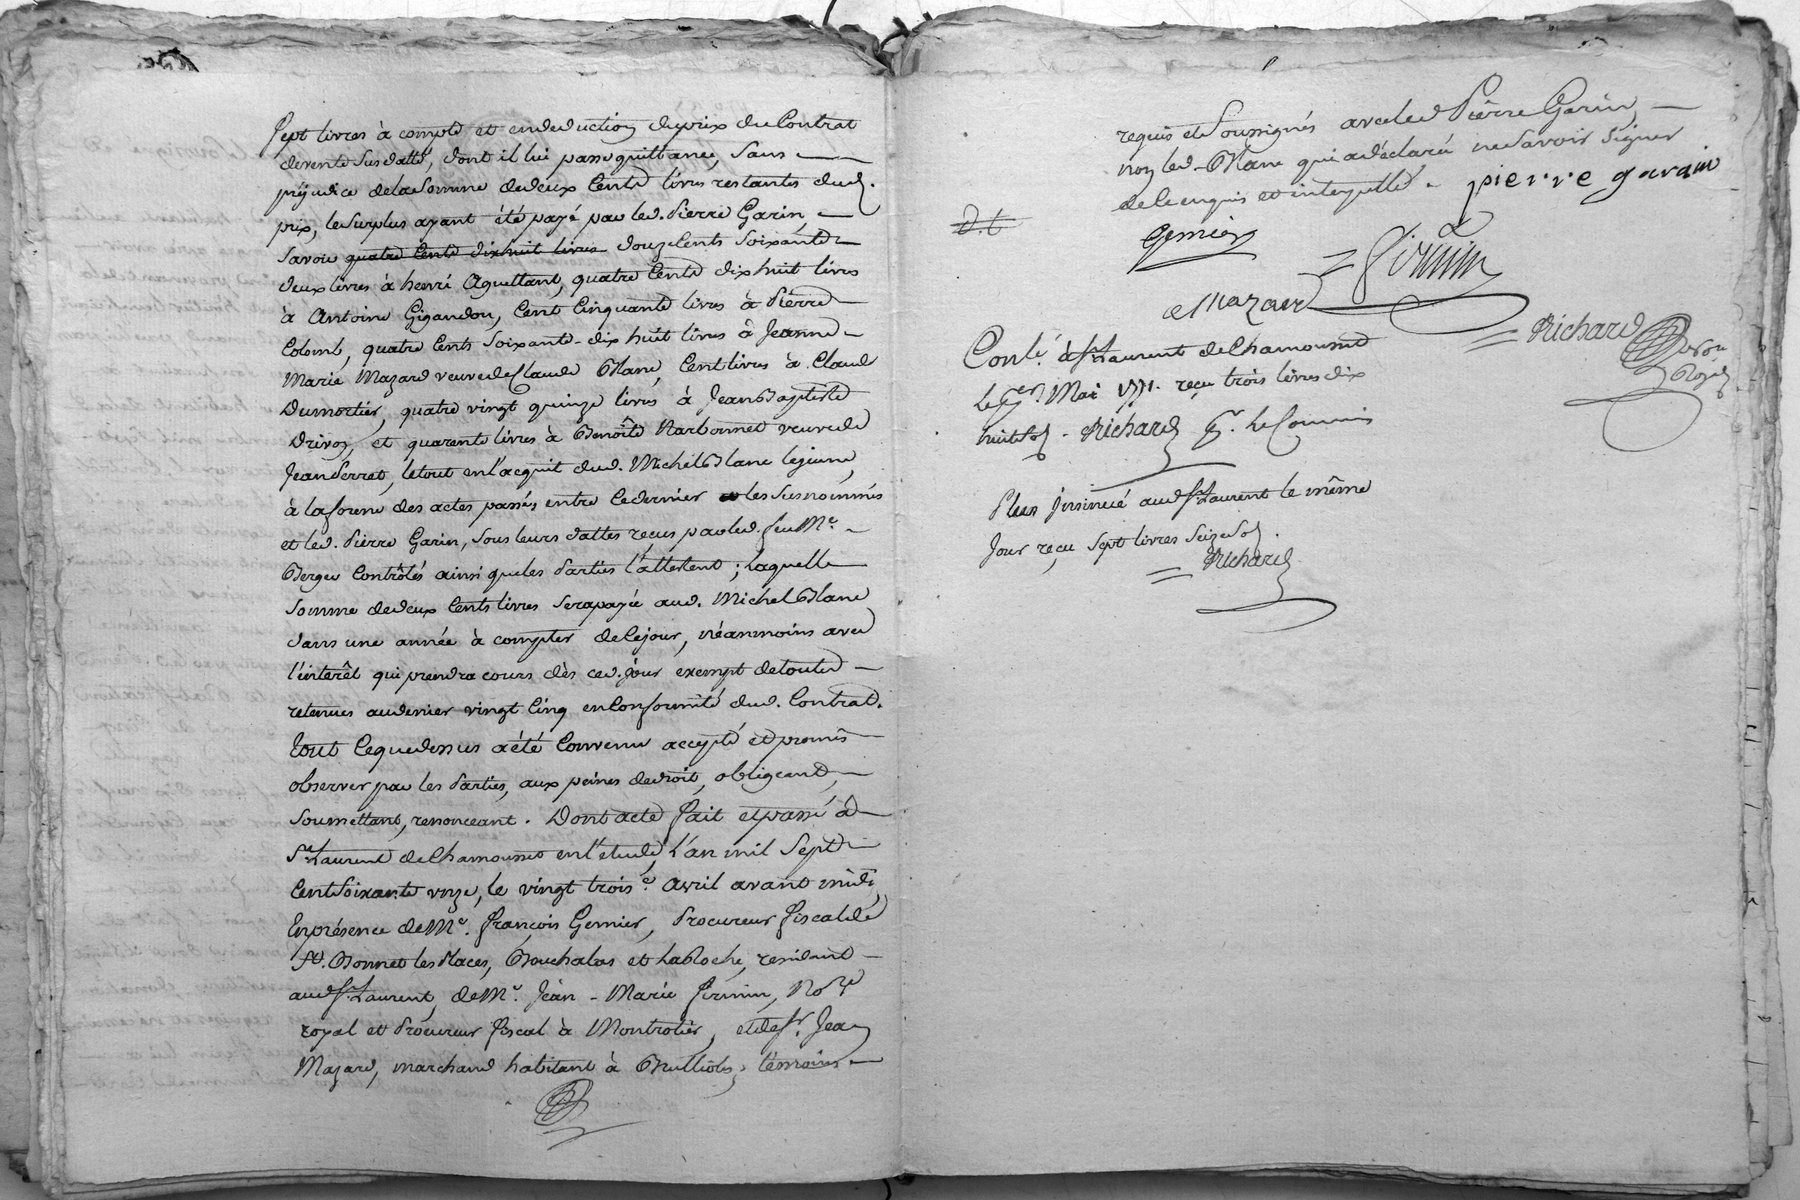 Sept livres à compte et en deduction du prix du Contrat
de vente Susdatté, dont il lui passe quittance, Sans
préjudice de la Somme de deux Cents livres restantes dud.
prix, le Surplus ayant été payé par led. Pierre Garin,
Savoir quatre Cents dixhuit livres douze Cents Soixante
deux livres à henri Aguettant, quatre Cents dix huit livres
à Antoine Gigandon, Cent Cinquante livres à Pierre
Colomb, quatre Cents Soixante-dix huit livres à Jeanne
Marie Mazard veuve de Claude Blanc, Cent livres à Claude
Dumortier, quatre vingt quinze livres à Jean Baptiste
Drivon, et quarente livres à Benoite Narbonnet veuve de
Jean Perret, le tout en l'acquit dud. Michel Blanc le jeune,
à la forme des actes passés, entre ce dernier les Susnommés
et led. Pierre Garin, Sous leurs dattes reçus par led. feu Me.
Berger Contrôlés ainsi que les Parties l'attestent; laquelle
Somme de deux Cents livres Sera payée aud. Michel Blanc
dans une année à compter de Ce jour, néanmoins avec
l'intérêt qui prendra cours dès ced. Jour exempt de toutes
retenues au denier vingt Cinq en Conformité dud. Contrat.
Tout Ce que dessus a été Convenu accepté et promis
observer par les Parties, aux peines de droit, obligeant,
Soumettant, renonceant. Dont acte fait et passé à
St. Laurent de Chamousset en l'etude, L'an mil Sept
Cent Soixante onze, le vingt trois e. Avril avant midi,
En présence de Me. françois Gernier, Procureur fiscal de
St. Bonnet les Places, Bouchalas et la Roche, residant
aud. St. Laurent, de Me. Jean-Marie firmin, No.re
royal et Procureur fiscal à Montrotier, et de Sr. Jean
Mazard, marchand habitant à Brulliole, témoins
requis et Soussignés avec led. Pierre Garin,
non led. Blanc qui a déclaré ne Savoir Signer
de Ce enquis et interpellé. pierre garain
D.t
Gernier
firmin
Mazard
Richard
Royal
Conlé. à St Laurent de Chamousset
le per. Mai 1771. reçu trois livres dix
huit Sols. Richard pr. le Commis
Plus Insinué aud St. Laurent le même
Jour reçu Sept livres Seize Sols.
Richard